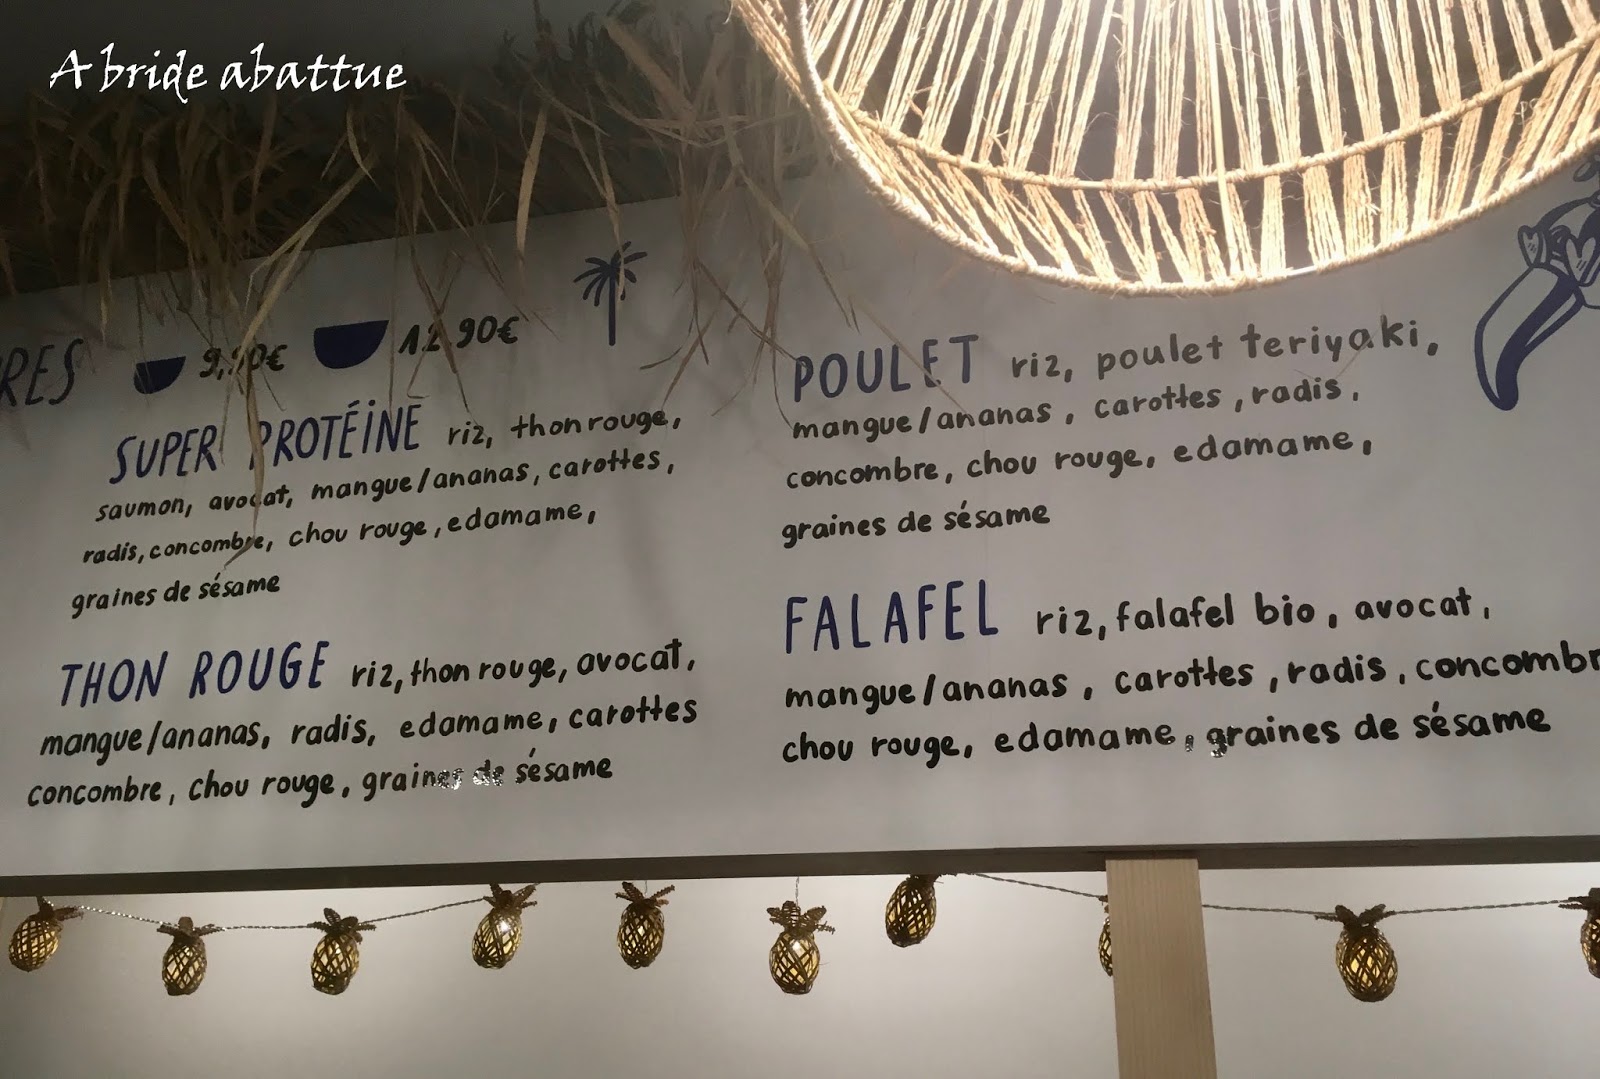 A bride abattue
RES 12,90€
SUPER PROTÉINE riz, thon rouge,
saumon, avocat, mangue/ananas, carottes,
radis, concombre, chou rouge, edamame,
graines de sésame
THON ROUGE riz, thon rouge, avocat,
mangue/ananas, radis, edamame, carottes
concombre, chou rouge, graines de sésame
POULET riz, poulet teriyaki,
mangue/ananas, carottes, radis,
concombre, chou rouge, edamame,
graines de sésame
FALAFEL riz, falafel bio, avocat,
mangue/ananas, carottes, radis, concombr
chou rouge, edamame, graines de sésame